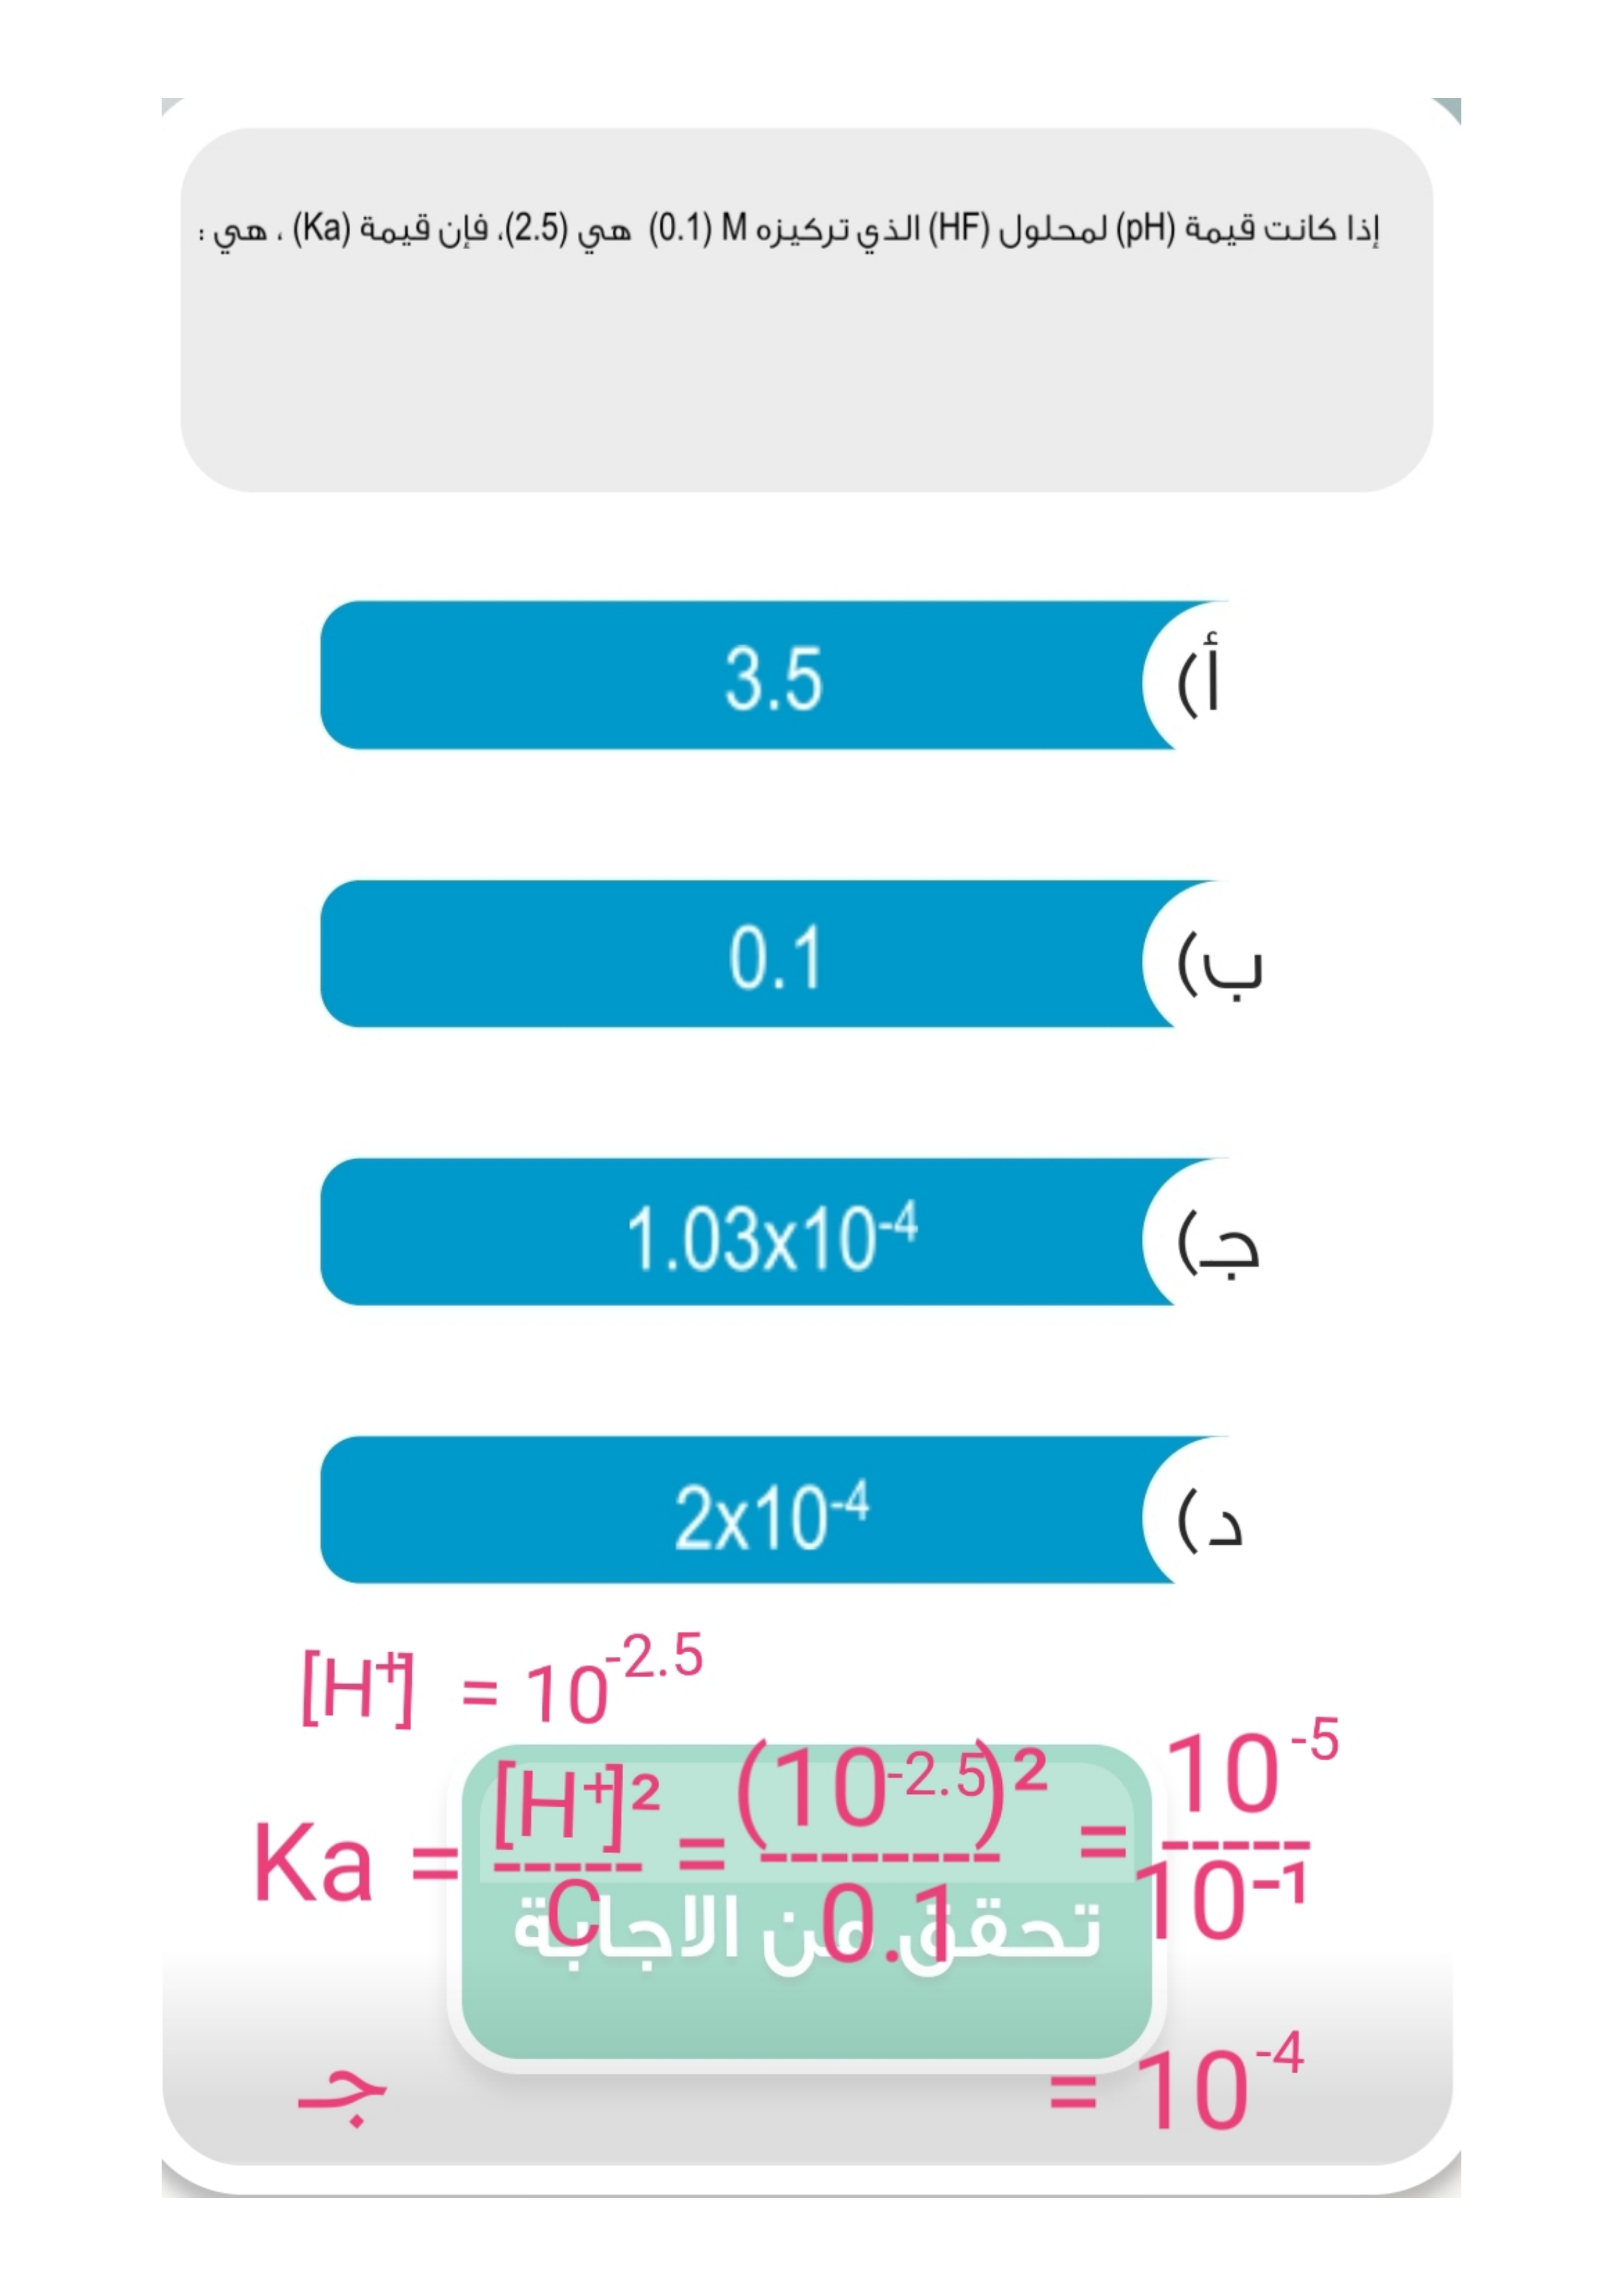 إذا كانت قيمة (pH) لمحلول (HF) الذي تركيزه M (0.1) هي (2.5)، فإن قيمة (Ka) ، هي :
أ) 3.5
ب) 0.1
ج) 1.03x10⁻⁴
د) 2x10⁻⁴
[H⁺] = 10⁻²·⁵
Ka = [H⁺]² / C = (10⁻²·⁵)² / 0.1 = 10⁻⁵ / 10⁻¹
تحقق من الاجابة
= 10⁻⁴
جـ